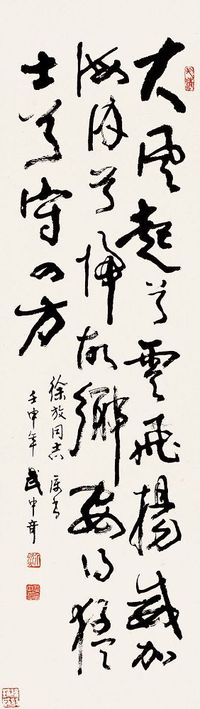 大風起兮雲飛揚威加
海内兮歸故鄉安得猛
士兮守四方
徐放同志
壬申年 武中奇